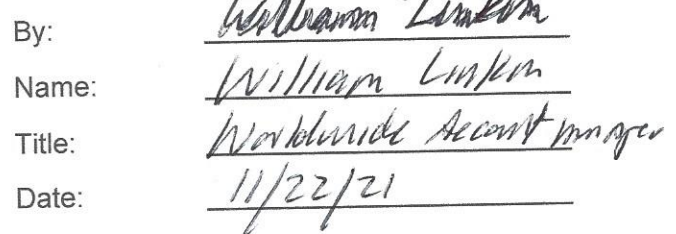 By: William Linkon
Name: William Linkon
Title: Worldwide Account manager
Date: 11/22/21